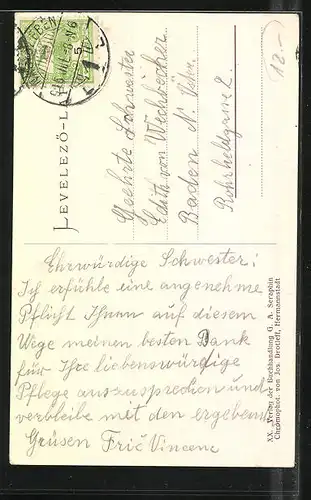 LEVELEZŐ-LA
Geehrte Schwester
Edith von
Baden N. Östr.
12.-
Ehrwürdige Schwester!
Ich erfühle eine angenehme
Pflicht Ihnen auf diesem
Wege meinen besten Dank
für Ihre liebenswürdige
Pflege auszusprechen und
verbleibe mit den ergebenst
Grüsen Frič Vincenc
XX. Verlag der Buchhandlung G. A. Seraphin
Chromophot. von Jos. Drotleff, Hermannstadt